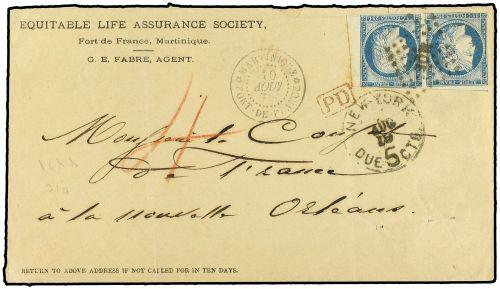 EQUITABLE LIFE ASSURANCE SOCIETY,
Fort de France, Martinique.
G. E. FABRE, AGENT.
MARTINIQUE
10
AOUT
FORT-DE-FRANCE
PD
NEW-YORK
AUG
19
DUE 5 CTS
4
Monsieur le Consul
de France
à la nouvelle Orléans.
RETURN TO ABOVE ADDRESS IF NOT CALLED FOR IN TEN DAYS.